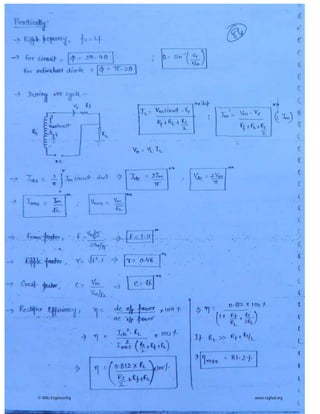 Practically:-
→ Ripple frequency, fr = 2f
→ for circuit, φ = 2π-4θ ; θ = sin⁻¹(Vr/Vm)
for individual diode, φ = π-2θ
→ During +ve cycle -
Vr Rf
Vmsinωt
RL
IL = Vm sinωt - Vr / Rf+RL+Rs/2
Im' = Vm - Vr / Rf+RL+Rs/2 (Im)
V0 = VL IL
→ Idc = 1/π ∫ Im sinωt dωt ⇒ Idc = 2Im/π , Vdc = 2Vm/π
→ Irms = Im/√2 ; Vrms = Vm/√2
→ Form factor, f = Vm/√2 / 2Vm/π ⇒ f = 1.11
→ Ripple factor, r = √f²-1 ⇒ r = 0.48
→ Crest factor, C = Vm / Vm/√2 ⇒ C = √2
→ Rectifier Efficiency, η = dc o/p power / ac i/p power × 100 %
⇒ η = Idc² RL / I²rms (Rs/2+Rf+RL) × 100 %
⇒ η = (0.812 × RL / Rs/2 + Rf+RL) × 100 %
⇒ η = 0.812 × 100 % / (1 + Rf/RL + Rs/2RL)
If RL >> Rf + Rs/2
⇒ ηmax = 81.2 %
www.raghul.org